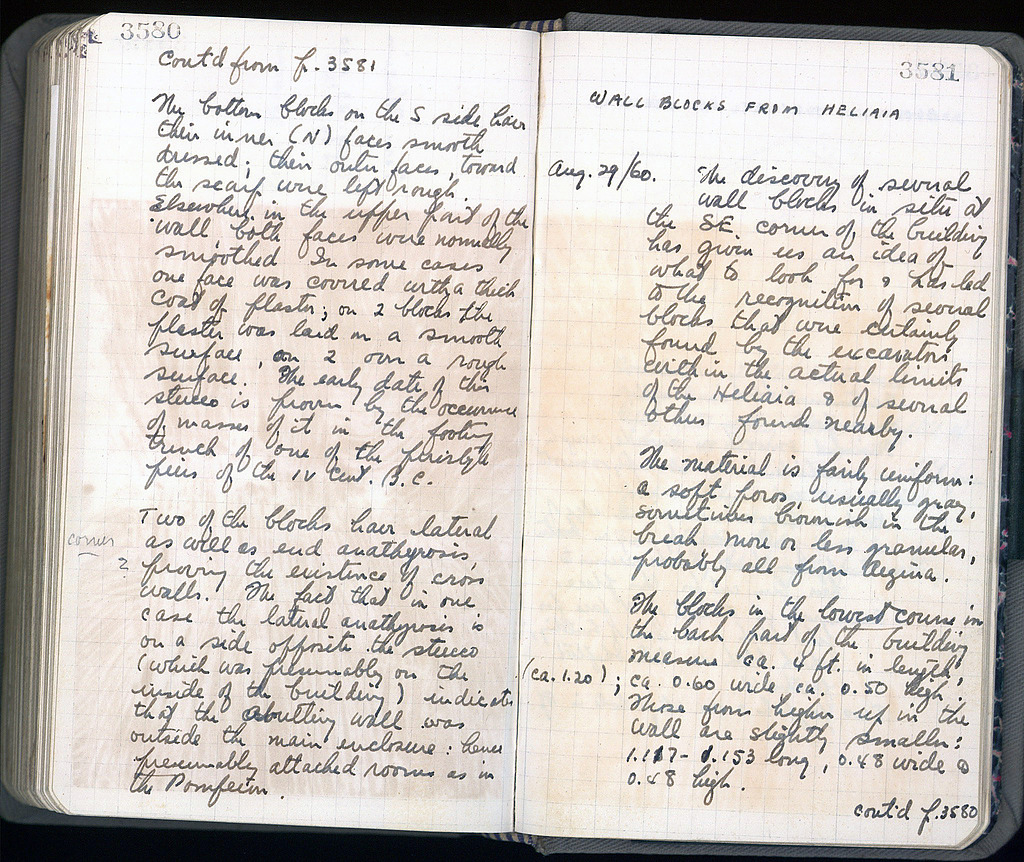 3580
cont'd from p. 3581
The bottom blocks on the S side have
their inner (N) faces smooth
dressed; their outer faces, toward
the scarf were left rough.
Elsewhere in the upper part of the
wall both faces were normally
smoothed. In some cases
one face was covered with a thick
coat of plaster; on 2 blocks the
plaster was laid on a smooth
surface, on 2 over a rough
surface. The early date of this
stucco is proven by the occurrence
of masses of it in the footing
trench of one of the peristyle
piers of the IV cent. B.C.
Two of the blocks have lateral
corner
as well as end anathyrosis,
?
proving the existence of cross
walls. The fact that in one
case the lateral anathyrosis is
on a side opposite the stucco
(which was presumably on the
inside of the building) indicates
that the abutting wall was
outside the main enclosure: hence
presumably attached rooms as in
the Pompeion.
3581
WALL BLOCKS FROM HELIAIA
Aug. 29/60. The discovery of several
wall blocks in situ at
the SE. corner of the building
has given us an idea of
what to look for & has led
to the recognition of several
blocks that were certainly
found by the excavators
within the actual limits
of the Heliaia & of several
others found nearby.
The material is fairly uniform:
a soft poros, usually gray,
sometimes brownish in the
break more or less granular,
probably all from Aegina.
The blocks in the lowest course in
the back part of the building
measure ca. 4 ft. in length,
(ca. 1.20); ca. 0.60 wide ca. 0.50 high.
Those from higher up in the
wall are slightly smaller:
1.117 - 1.153 long, 0.48 wide &
0.48 high.
cont'd p. 3580